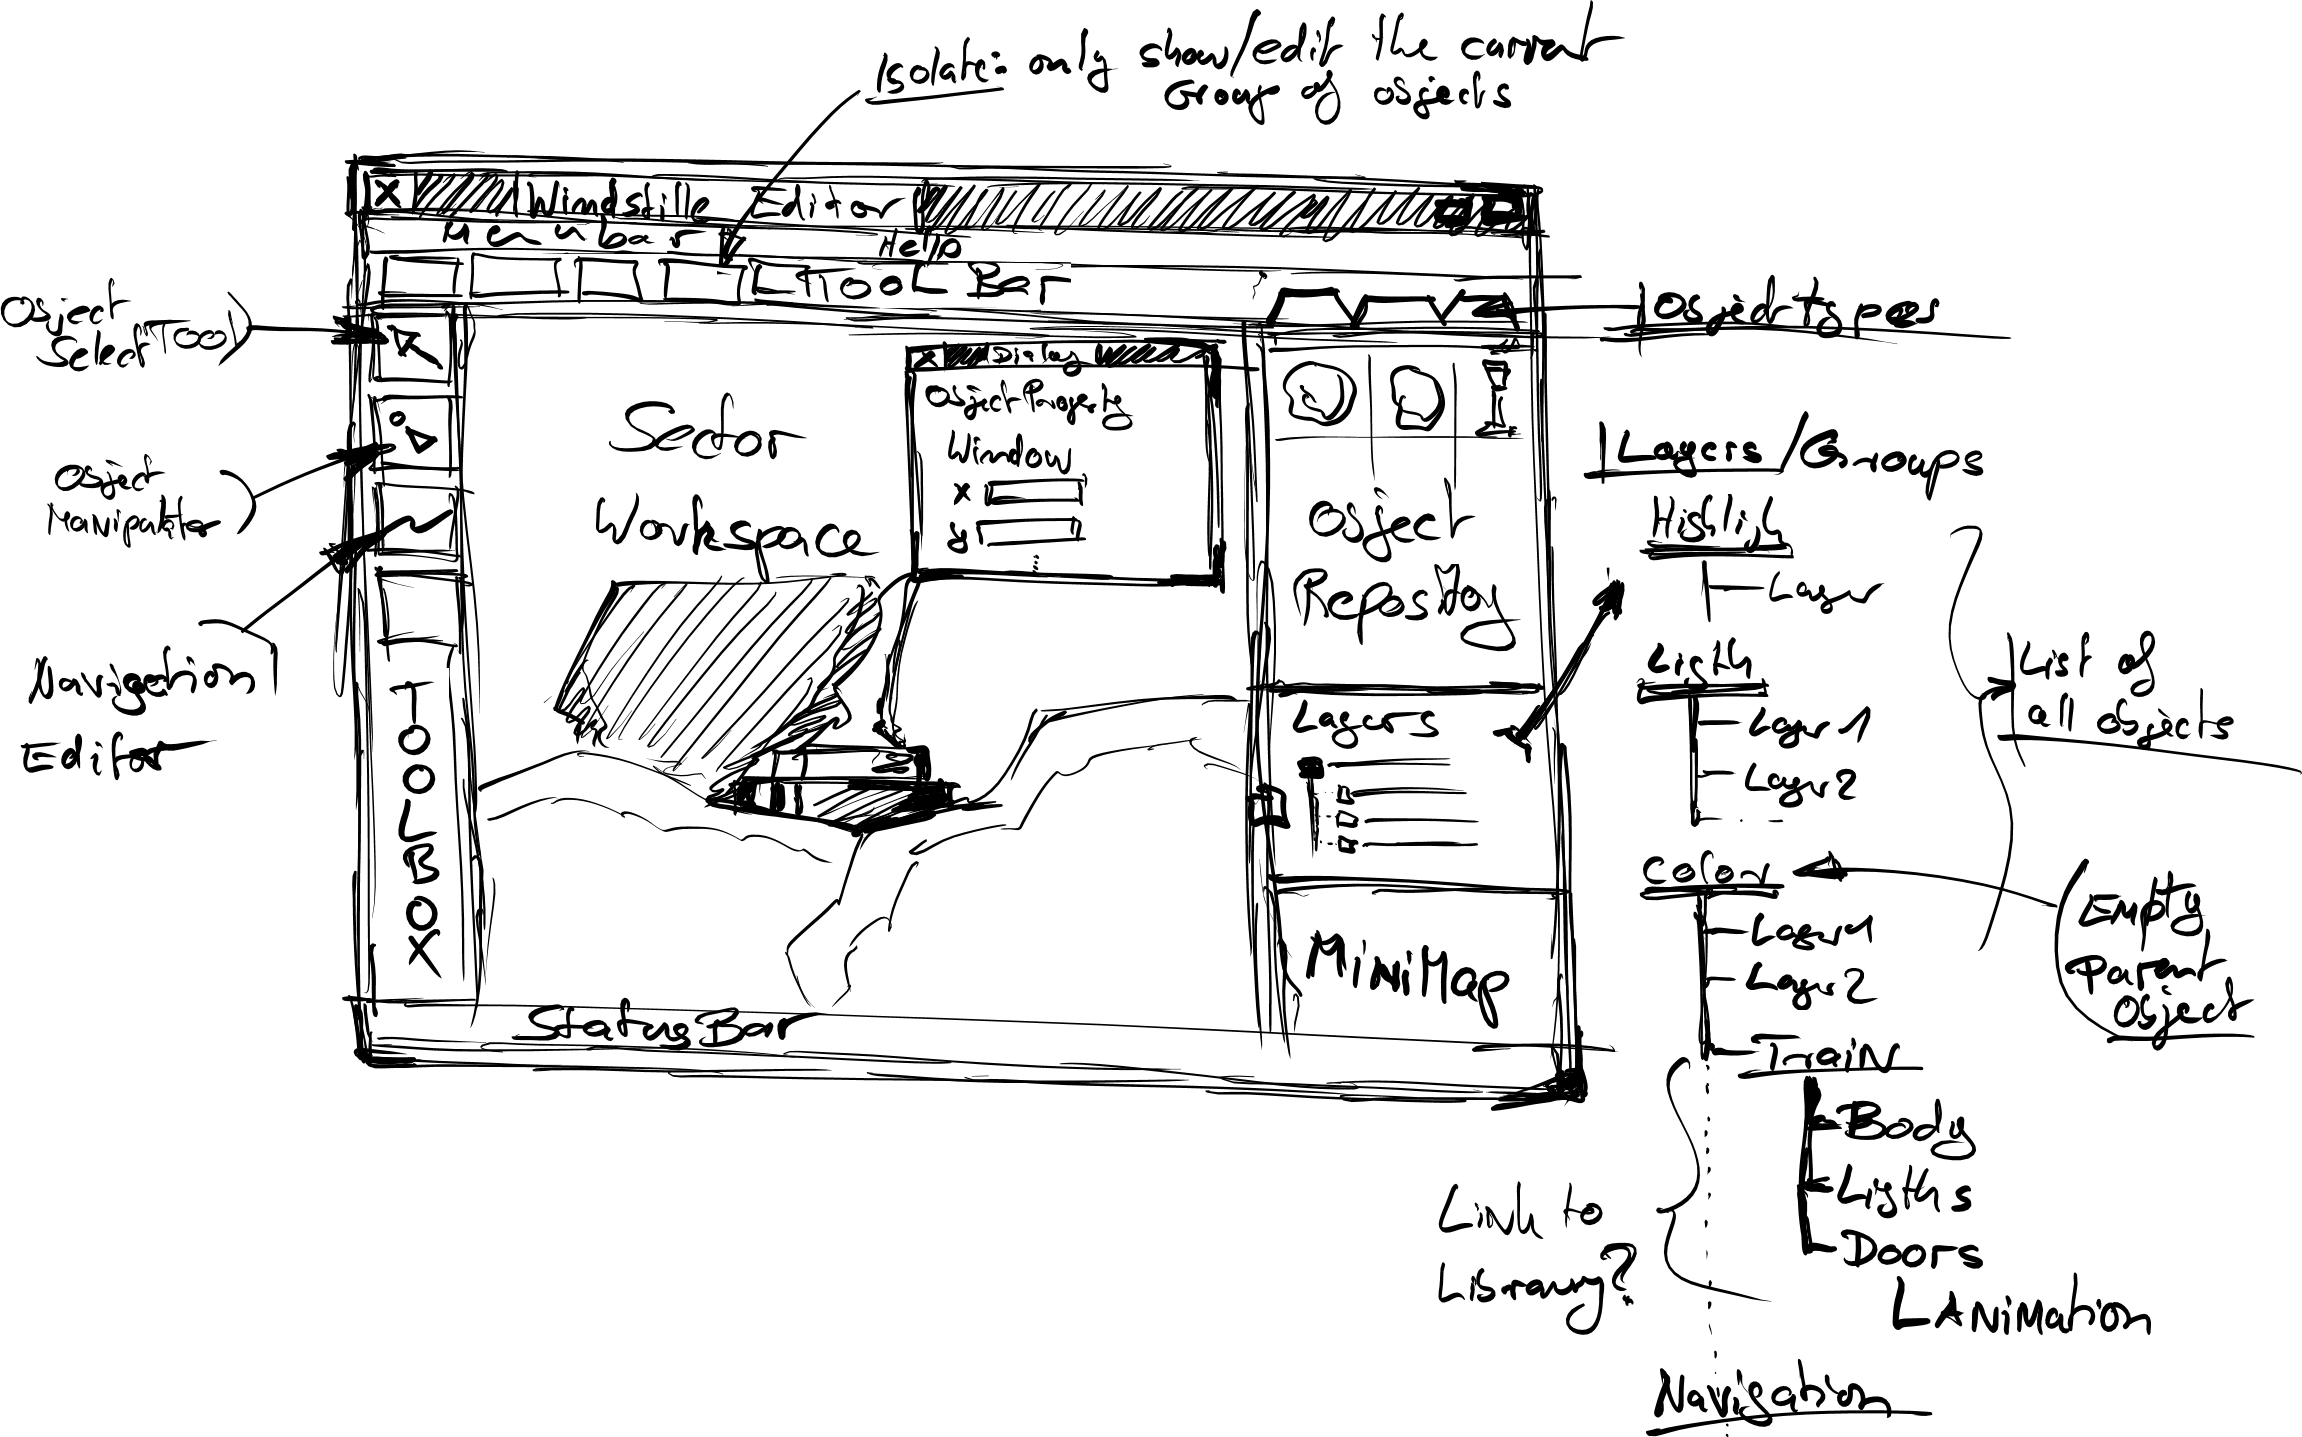 Isolate: only show/edit the current
Group of objects
X Windstille Editor
Menubar Hello
TOOL Bar
Object
Select TOOl
Object
Manipulator
Navigation
Editor
TOOLBOX
Sector
Workspace
X Dialog
Object Property
Window
x
y
Objecttypes
Object
Repository
Layers
MiniMap
StatusBar
Layers/Groups
Highligh
Layer
Ligth
Layer 1
Layer 2
Color
Layer 1
Layer 2
Train
Body
Ligths
Doors
Animation
Navigation
List of
all objects
Empty
Parent
Object
Link to
Library?